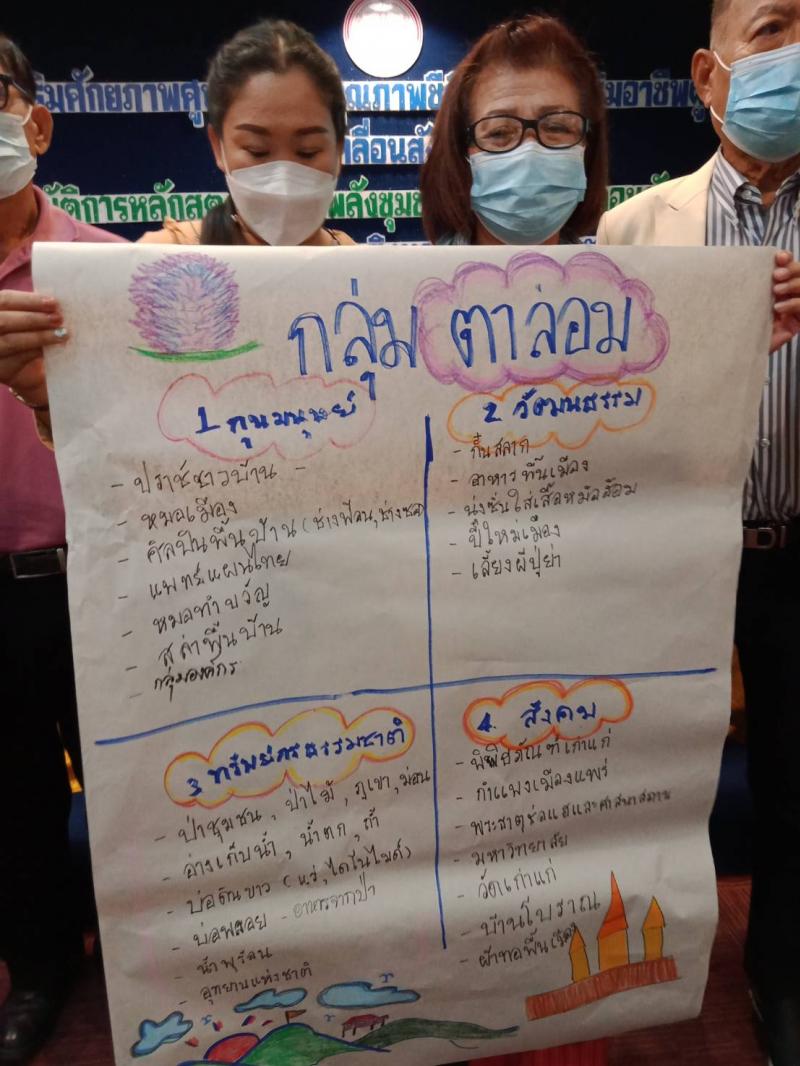 ิมศักยภาพศู
ุณภาพชี
ิมอาชีพผู
ลื่อนสั
ัติการหลักสูต
พลังชุมช
กลุ่ม ตาล่อม
1 ทุนมนุษย์
- ปราช์ชาวบ้าน -
- หมอเมือง
- ศิลปินพื้นบ้าน (ช่างฟ้อน, ช่างซอ)
- แพทย์แผนไทย
- หมอทำขวัญ
- สล่าพื้นบ้าน
- กลุ่มองค์กร
2 วัฒนธรรม
- กิ๋นสลาก
- อาหารพื้นเมือง
- นุ่งซิ่นใส่เสื้อหม้อห้อม
- ปี๋ใหม่เมือง
- เลี้ยงผีปู่ย่า
3 ทรัพยากรธรรมชาติ
- ป่าชุมชน, ป่าไม้, ภูเขา, ม่อน
- อ่างเก็บน้ำ, น้ำตก, ถ้ำ
- บ่อดินขาว (แร่, ไดโนไมด์)
- บ่อพลอย - อาหารจากป่า
- น้ำพุร้อน
- อุทยานแห่งชาติ
4. สังคม
- พิพิธภัณฑ์เก่าแก่
- กำแพงเมืองแพร่
- พระธาตุช่อแฮและศาสนสถาน
- มหาวิทยาลัย
- วัดเก่าแก่
- บ้านโบราณ
- ผ้าทอพื้น